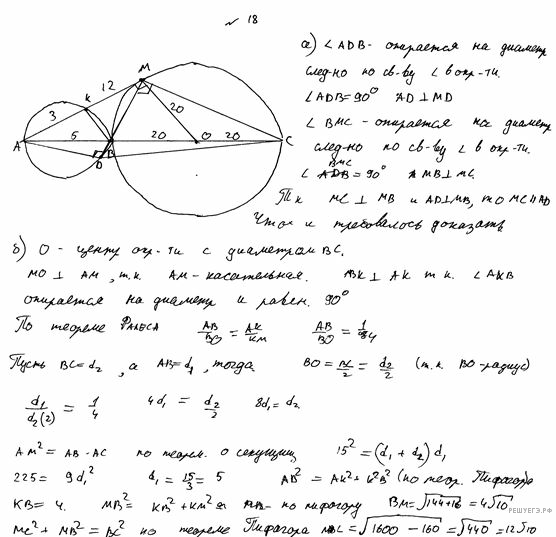 № 18
а) ∠ADB - опирается на диаметр
след-но по св-ву ∠ в окр-ти.
∠ADB = 90° AD ⊥ MD
∠BMC - опирается на диаметр
след-но по св-ву ∠ в окр-ти.
BMC
∠ADB = 90° MB ⊥ MC.
Т.к MC ⊥ MB и AD ⊥ MB, то MC || AD
Что и требовалось доказать
M
12
K
20
3
A
5
B
20
O
20
C
D
б) O - центр окр-ти с диаметром BC.
MO ⊥ AM, т.к. AM - касательная. BK ⊥ AK т.к. ∠AKB
опирается на диаметр и равен 90°
По теореме Фалеса AB/BO = AK/KM AB/BO = 1/4
Пусть BC = d₂, а AB = d₁, тогда BO = BC/2 = d₂/2 (т.к. BO - радиус)
d₁/d₂(2) = 1/4 4d₁ = d₂/2 8d₁ = d₂
AM² = AB·AC по теорем. о секущих 15² = (d₁ + d₂) d₁
225 = 9d₁² d₁ = 15/3 = 5 AB² = AK² + KB² (по теор. Пифагора)
KB = 4. MB² = KB² + KM² по пифагору BM = √144+16 = 4√10
MC² + MB² = BC² по теореме Пифагора MC = √1600 − 160 = √1440 = 12√10
РЕШУЕГЭ.РФ